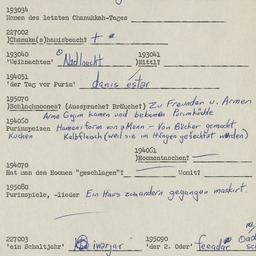 193034
Namen des letzten Chanukkah-Tages
227002
)Chanuka(s)hausibesch? t
193040 193041
'Weihnachten' Nidlnacht )Hittl?
194051
'der Tag vor Purim' danis ester
195070
)Schlachmones? (Aussprache? Bräuche?) Zu Freunden u. Armen
Arme Gojim kamen und bekamen Purimküchle
194060
Purimspeisen Hamoniform von pMann - Von Bücher gemacht
Kuchen Kalbfleisch (weil sie im Hängen gefochtet wurden)
194061
)Hoomentaschen?
194070
Hat man den Hoomen "geschlagen"? Womit?
195080
Purimspiele, -lieder Ein Haus zu andern gegangen maskirt.
227003 195090
'ein Schaltjahr' iwarjar 'der 2. Oder' feeadar